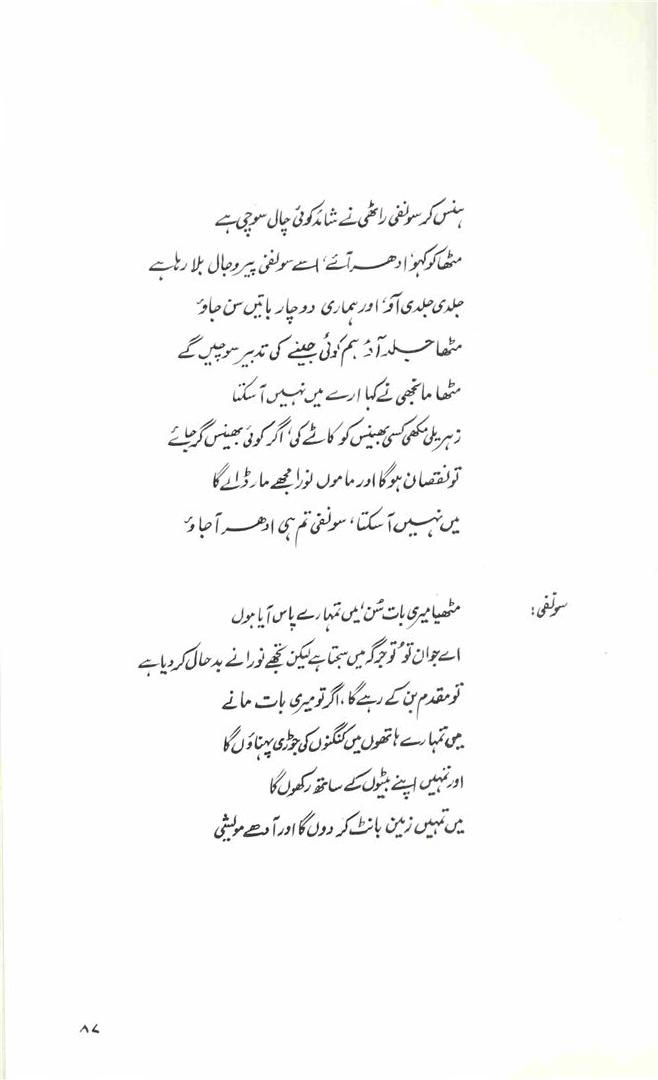 ہنس کر سونفی راٹھی نے شائد کوئی چال سوچی ہے
مٹھا کو کہو ادھر آئے، اسے سونفی پیر وجال بلا رہا ہے
جلدی جلدی آؤ، اور ہماری دو چار باتیں سن جاؤ
مٹھا جلد آؤ ہم کوئی جینے کی تدبیر سوچیں گے
مٹھا مانجھی نے کہا ارے میں نہیں آ سکتا
زہریلی مکھی کسی بھینس کو کاٹے گی، اگر کوئی بھینس گر جائے
تو نقصان ہوگا اور ماموں نورا مجھے مار ڈالے گا
میں نہیں آ سکتا، سونفی تم ہی ادھر آ جاؤ
سونفی: مٹھیا میری بات سُن، میں تمہارے پاس آیا ہوں
اے جوان تو، تو جرگہ میں سجتا ہے لیکن تجھے نورا نے بد حال کر دیا ہے
تو مقدم بن کے رہے گا، اگر تو میری بات مانے
میں تمہارے ہاتھوں میں کنگنوں کی جوڑی پہناؤں گا
اور تمہیں اپنے بیٹوں کے ساتھ رکھوں گا
میں تمہیں زمین بانٹ کر دوں گا اور آدھے مویشی
۸۷